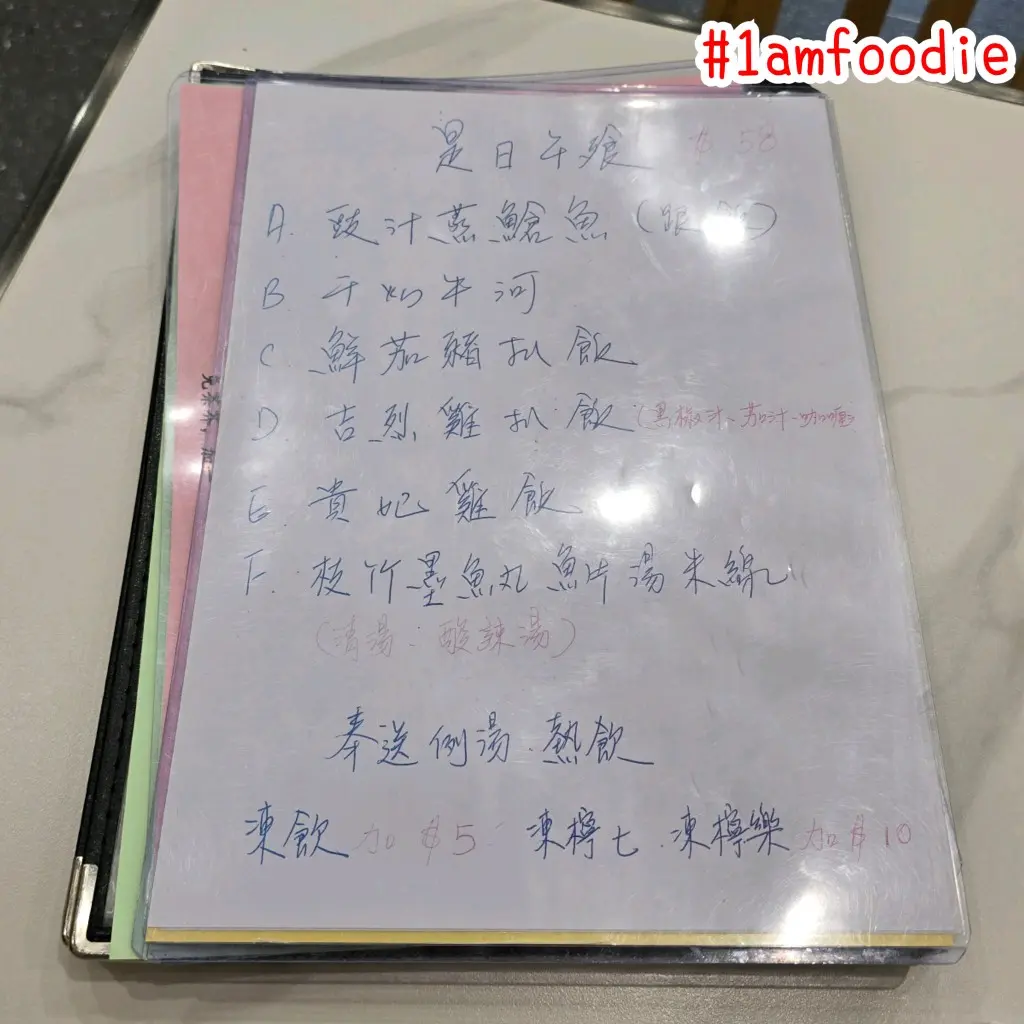 #1amfoodie
是日午飱 $58
A. 豉汁蒸鯧魚(跟飯)
B 干炒牛河
C 鮮茄豬扒飯
D 吉烈雞扒飯(黑椒汁、茄汁、
E. 貴妃雞飯
F. 枝竹墨魚丸魚片湯米線
(清湯.酸辣湯)
奉送例湯.熱飲
凍飲加$5 凍檸七.凍檸樂加$10
免茶芥,加